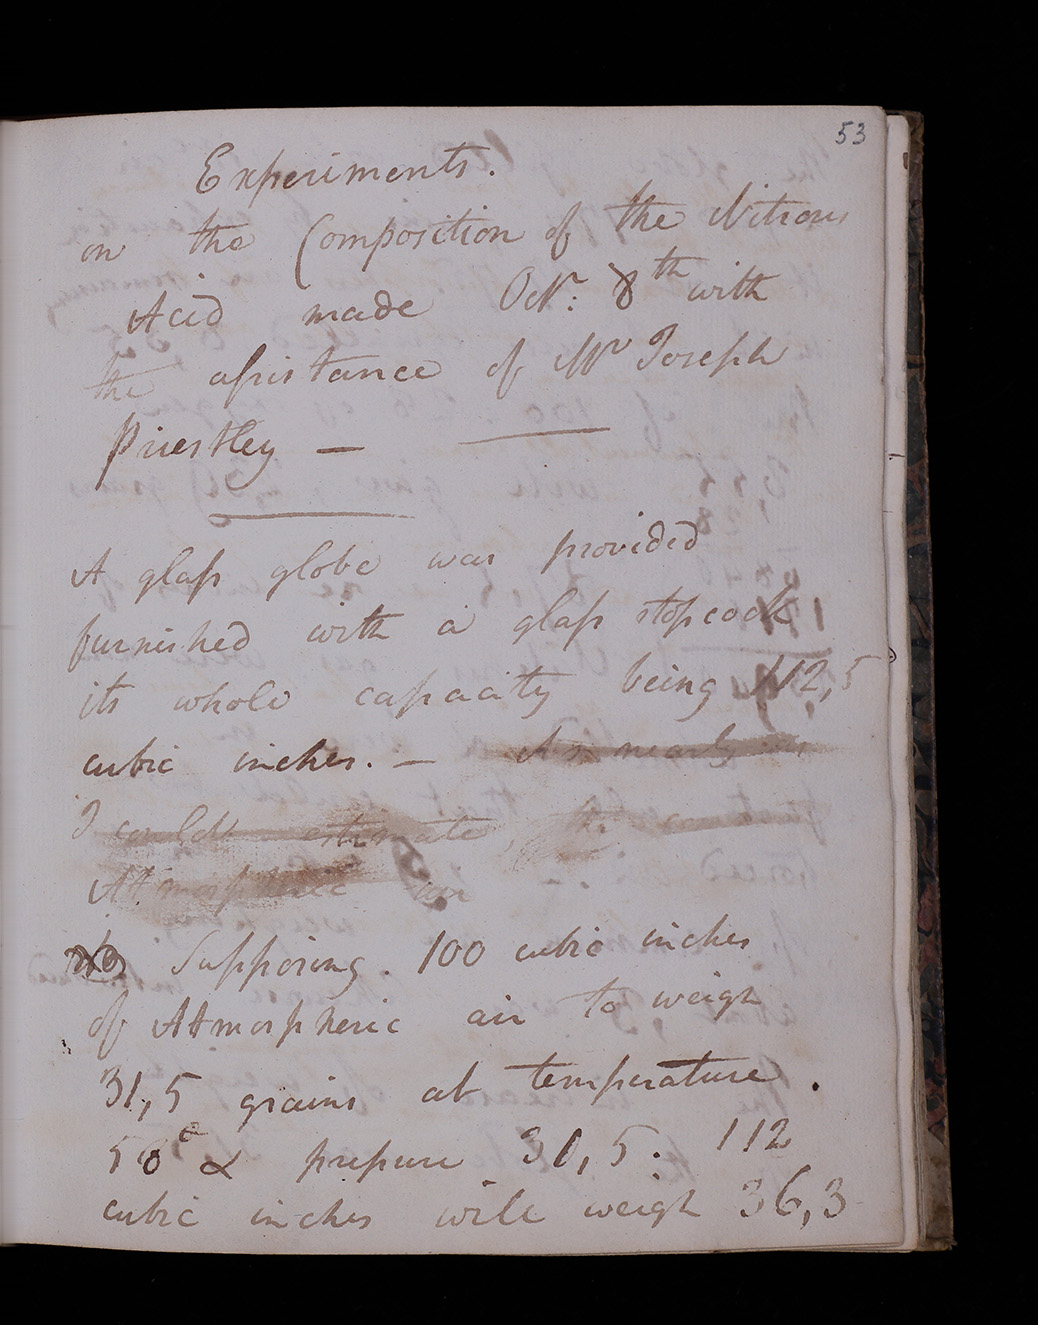 53
Experiments.
on the Composition of the Nitrous
Acid made Octr. 8th with
the assistance of Mr Joseph
Priestley —
A glass globe was provided
furnished with a glass stopcock
its whole capacity being 112,5
cubic inches. — As nearly as
I could estimate the
Atmospheric air
Supposing. 100 cubic inches
of Atmospheric air to weigh
31,5 grains at temperature.
56° & pressure 30,5. 112
cubic inches will weigh 36,3